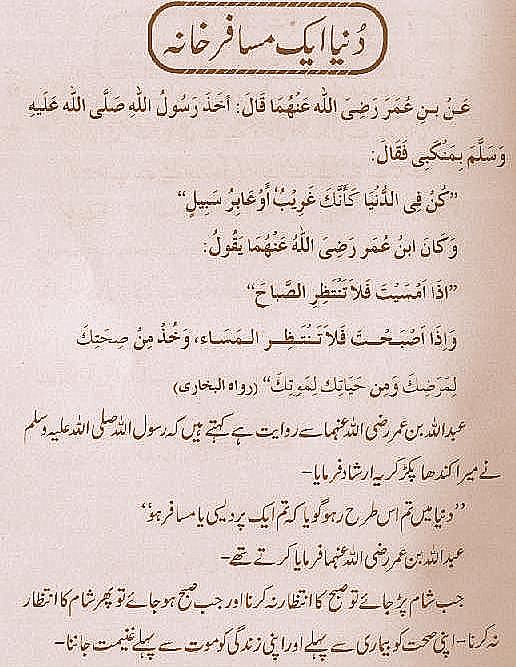 دُنیا ایک مسافر خانہ
عَنْ بنِ عُمَرَ رَضِیَ اللہ عَنْهُمَا قَالَ: اَخَذَ رَسُولُ اللهِ صَلَّى اللہ عَلَيْهِ
وَسَلَّمَ بِمَنْكَبِی فَقَالَ:
”كُنْ فِى الدُّنْيَا كَأَنَّكَ غَرِيْبٌ اَوْ عَابِرُ سَبِيلٍ“
وَكَانَ ابنُ عُمَر رَضِیَ اللهُ عَنْهُمَا يَقُولُ:
”اِذَا اَمْسَيْتَ فَلاَ تَنْتَظِرِ الصَّبَاحَ“
وَاِذَا اَصْبَحْتَ فَلاَ تَنْتَظِرِ المَسَاء، وَخُذْ مِنْ صِحَتِكَ
لِمَرَضِكَ وَمِن حَيَاتِكَ لِمَوتِكَ“ (رواه البخاری)
عبداللہ بن عمر رضی اللہ عنہما سے روایت ہے کہتے ہیں کہ رسول اللہ صلی اللہ علیہ وسلم
نے میرا کندھا پکڑ کر یہ ارشاد فرمایا-
”دنیا میں تم اس طرح رہو گویا کہ تم ایک پردیسی یا مسافر ہو“
عبداللہ بن عمر رضی اللہ عنہما فرمایا کرتے تھے-
جب شام پڑ جائے تو صبح کا انتظار نہ کرنا اور جب صبح ہو جائے تو پھر شام کا انتظار
نہ کرنا- اپنی صحت کو بیماری سے پہلے اور اپنی زندگی کو موت سے پہلے غنیمت جاننا-